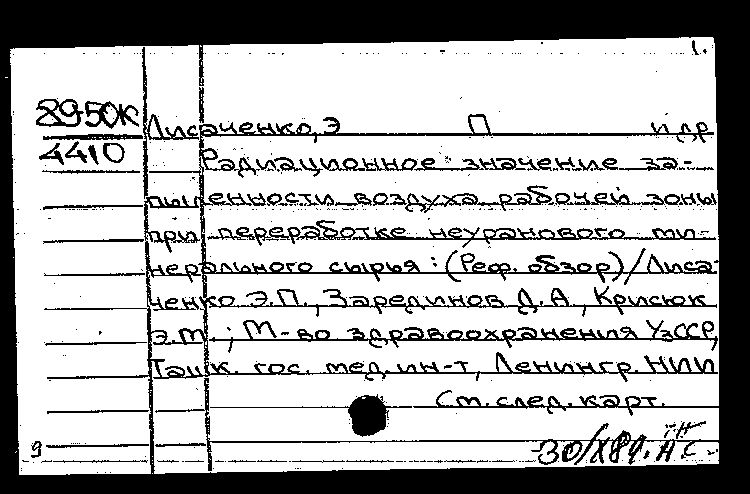 1.
8950К
Лисаченко, Э П и др
4410
Радиационное значение за-
пыленности воздуха рабочей зоны
при переработке неуранового ми-
нерального сырья: (Реф. обзор)/Лиса-
ченко Э.П., Зарединов Д.А., Крисюк
Э.М.; М-во здравоохранения УзССР,
Ташк. гос. мед. ин-т, Ленингр. НИИ
См. след. карт.
9
30/X89.